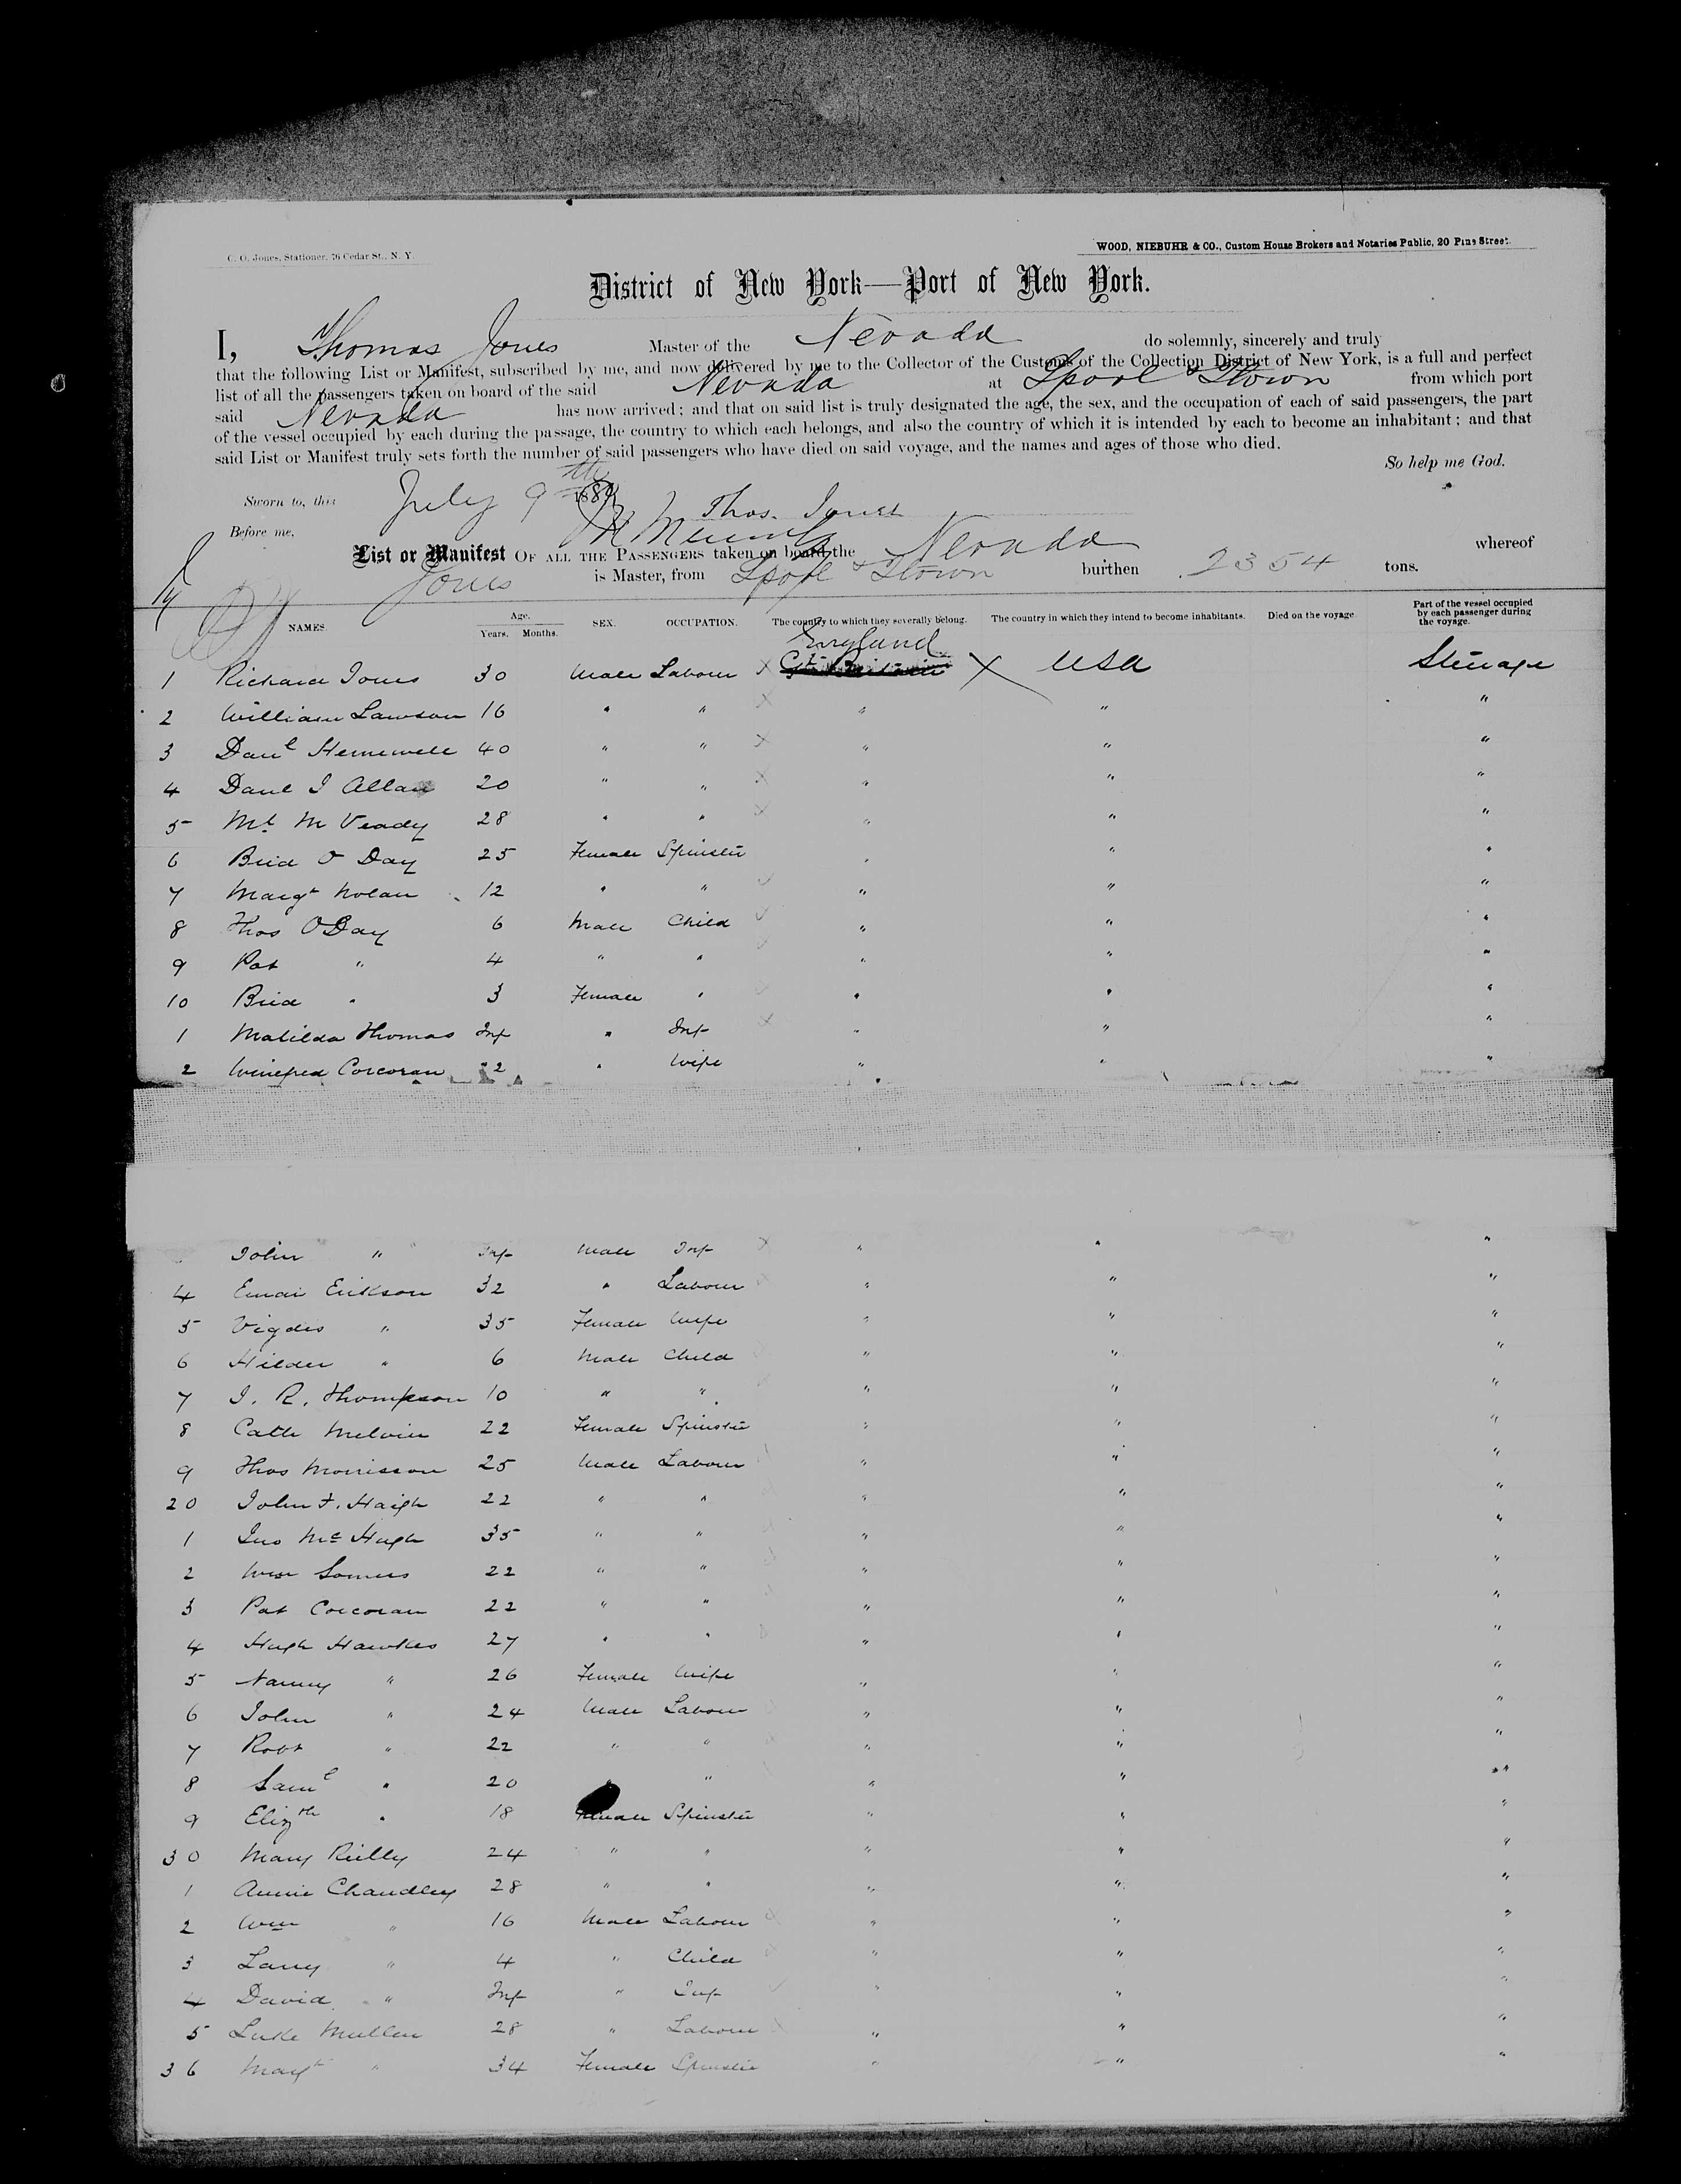 C. O. Jones, Stationer, 76 Cedar St., N. Y.
WOOD, NIEBUHR & CO., Custom House Brokers and Notaries Public, 20 Pine Street.
District of New York—Port of New York.
I, Thomas Jones Master of the Nevada do solemnly, sincerely and truly
that the following List or Manifest, subscribed by me, and now delivered by me to the Collector of the Customs of the Collection District of New York, is a full and perfect
list of all the passengers taken on board of the said Nevada at Lpool & Qtown from which port
said Nevada has now arrived; and that on said list is truly designated the age, the sex, and the occupation of each of said passengers, the part
of the vessel occupied by each during the passage, the country to which each belongs, and also the country of which it is intended by each to become an inhabitant; and that
said List or Manifest truly sets forth the number of said passengers who have died on said voyage, and the names and ages of those who died.
So help me God.
Sworn to, this July 9th 188
Thos. Jones
Before me,
List or Manifest OF ALL THE PASSENGERS taken on board the Nevada whereof
Jones is Master, from Lpool & Qtown burthen 2354 tons.
NAMES. Age. Years. Months. SEX. OCCUPATION. The country to which they severally belong. The country in which they intend to become inhabitants. Died on the voyage Part of the vessel occupied by each passenger during the voyage.
England
1 Richard Jones 30 Male Labour X Gt Britain X USA Steerage
2 William Lawson 16 " " X " " "
3 Danl Hemewell 40 " " X " " "
4 Danl J Allan 20 " " X " " "
5 Ml McVeady 28 " " X " " "
6 Brid O Day 25 Female Spinster " " "
7 Margt Nolan 12 " " " " "
8 Thos O Day 6 Male Child " " "
9 Pat " 4 " " " " "
10 Brid " 3 Female " " " "
1 Matilda Thomas Inf " Inf X " " "
2 Winefred Corcoran 22 " Wife " " "
John " Inf Male Inf X " " "
4 Einar Erikson 32 " Labour " " "
5 Vigdis " 35 Female Wife " " "
6 Hilder " 6 Male Child " " "
7 J. R. Thompson 10 " " " " "
8 Cath Melvin 22 Female Spinster " " "
9 Thos Morrisson 25 Male Labour " " "
20 John F. Haigh 22 " " " " "
1 Jno McHugh 35 " " " " "
2 Wm Somers 22 " " " " "
3 Pat Corcoran 22 " " " " "
4 Hugh Hawkes 27 " " " " "
5 Nanny " 26 Female Wife " " "
6 John " 24 Male Labour " " "
7 Robt " 22 " " " " "
8 Saml " 20 " " " " "
9 Elizth " 18 Female Spinster " " "
30 Mary Reilly 24 " " " " "
1 Annie Chandley 28 " " " " "
2 Wm " 16 Male Labour " " "
3 Larry " 4 " Child " " "
4 David " Inf " Inf " " "
5 Luke Mullen 28 " Labour " " "
36 Margt " 34 Female Spinster " " "